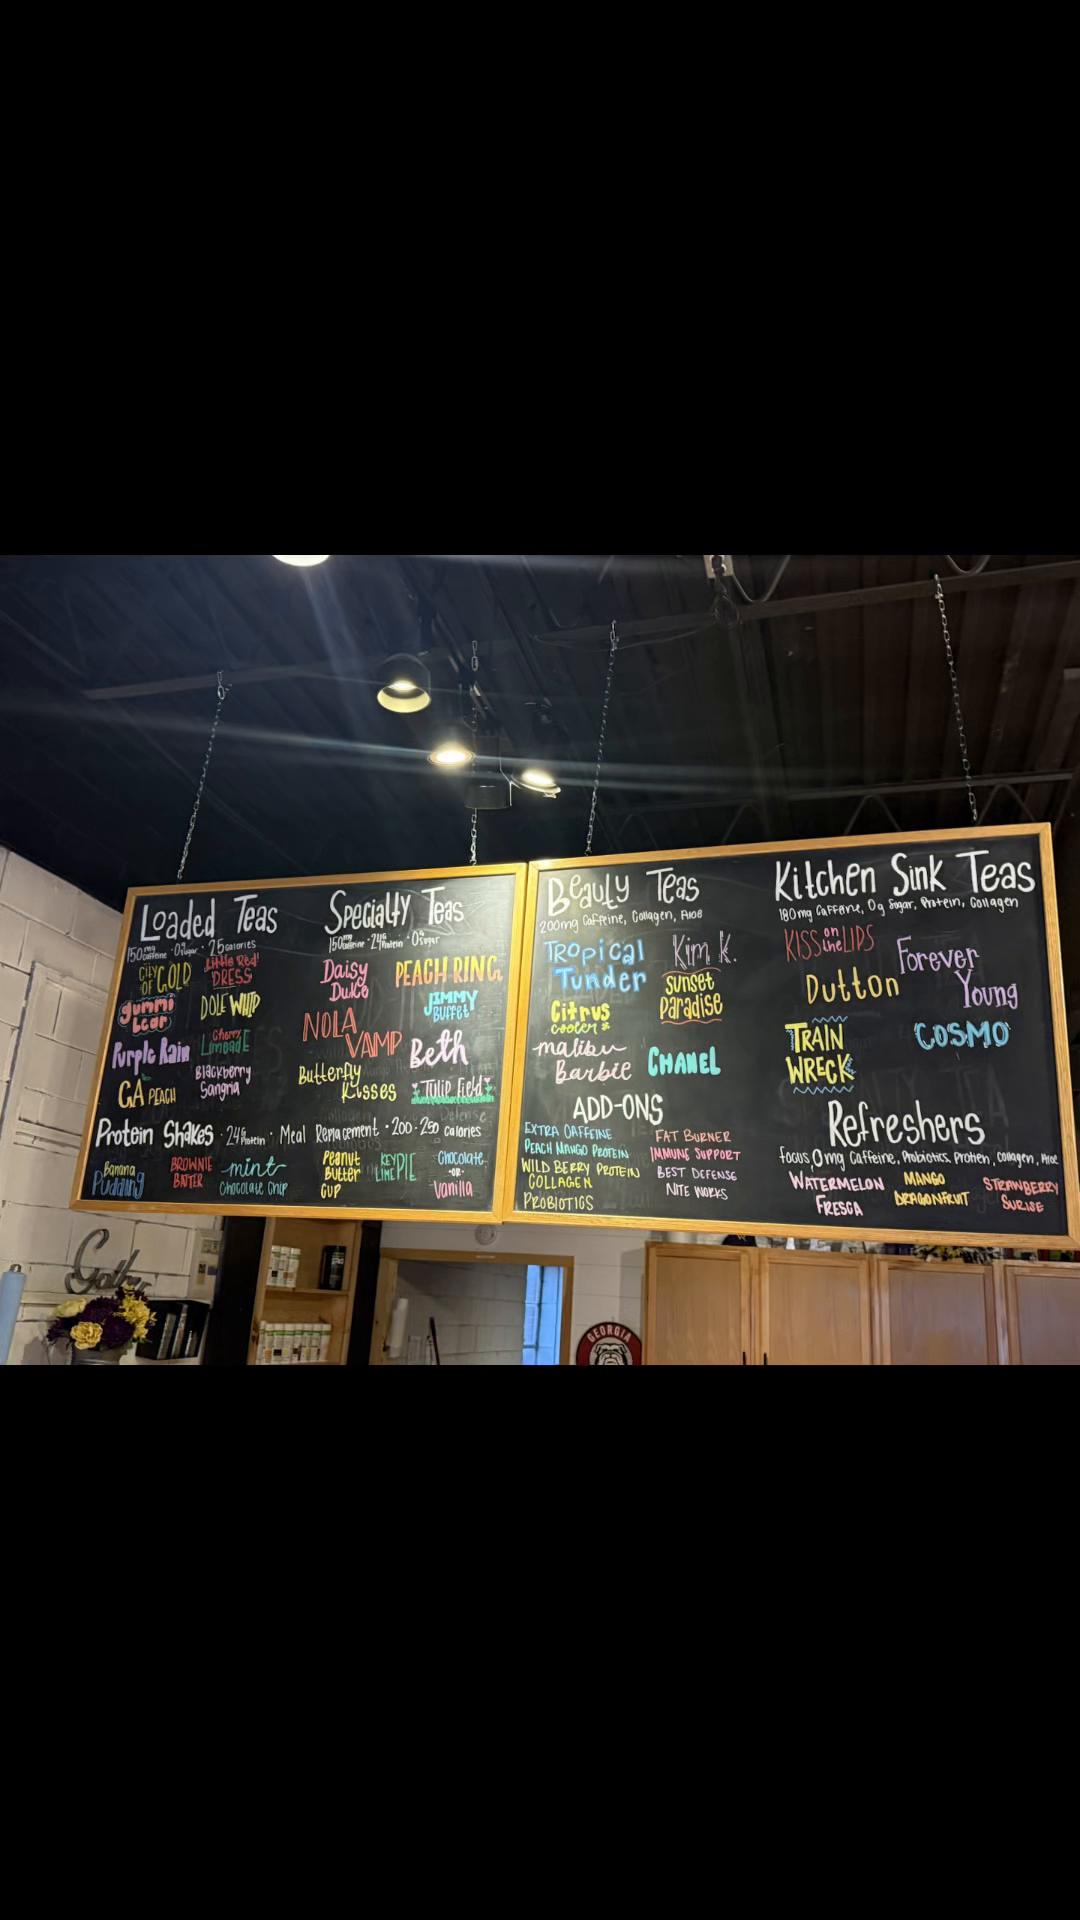 Loaded Teas
150mg caffeine · 0g sugar · 25 calories
CITY OF GOLD
Little Red DRESS
gummi bear
DOLE WHIP
Purple Rain
Cherry Limeade
GA PEACH
Blackberry Sangria
Specialty Teas
150mg caffeine · 24g Protein · 0g sugar
Daisy Duke
PEACH RING
JIMMY BUFFET
NOLA VAMP
Beth
Butterfly Kisses
Tulip Field
Protein Shakes · 24g Protein · Meal Replacement · 200-250 calories
Banana Pudding
BROWNIE BATTER
mint Chocolate Chip
Peanut Butter Cup
KEY LIME PIE
Chocolate
-OR-
Vanilla
Beauty Teas
200mg Caffeine, Collagen, Aloe
Tropical Tunder
Kim K.
Sunset Paradise
Citrus cooler
malibu Barbie
CHANEL
ADD-ONS
EXTRA CAFFEINE
PEACH MANGO PROTEIN
WILD BERRY PROTEIN
COLLAGEN
PROBIOTICS
FAT BURNER
IMMUNE SUPPORT
BEST DEFENSE
NITE WORKS
Kitchen Sink Teas
180mg Caffeine, 0g Sugar, Protein, Collagen
KISS on the LIPS
Forever Young
Dutton
TRAIN WRECK
COSMO
Refreshers
focus, 0mg Caffeine, Probiotics, Protien, Collagen, Aloe
WATERMELON FRESCA
MANGO DRAGONFRUIT
STRAWBERRY SURISE
Gather
GEORGIA